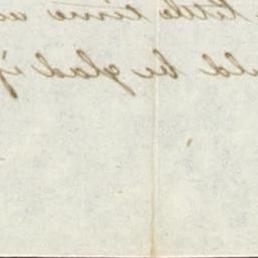 little time a
uld be glad if